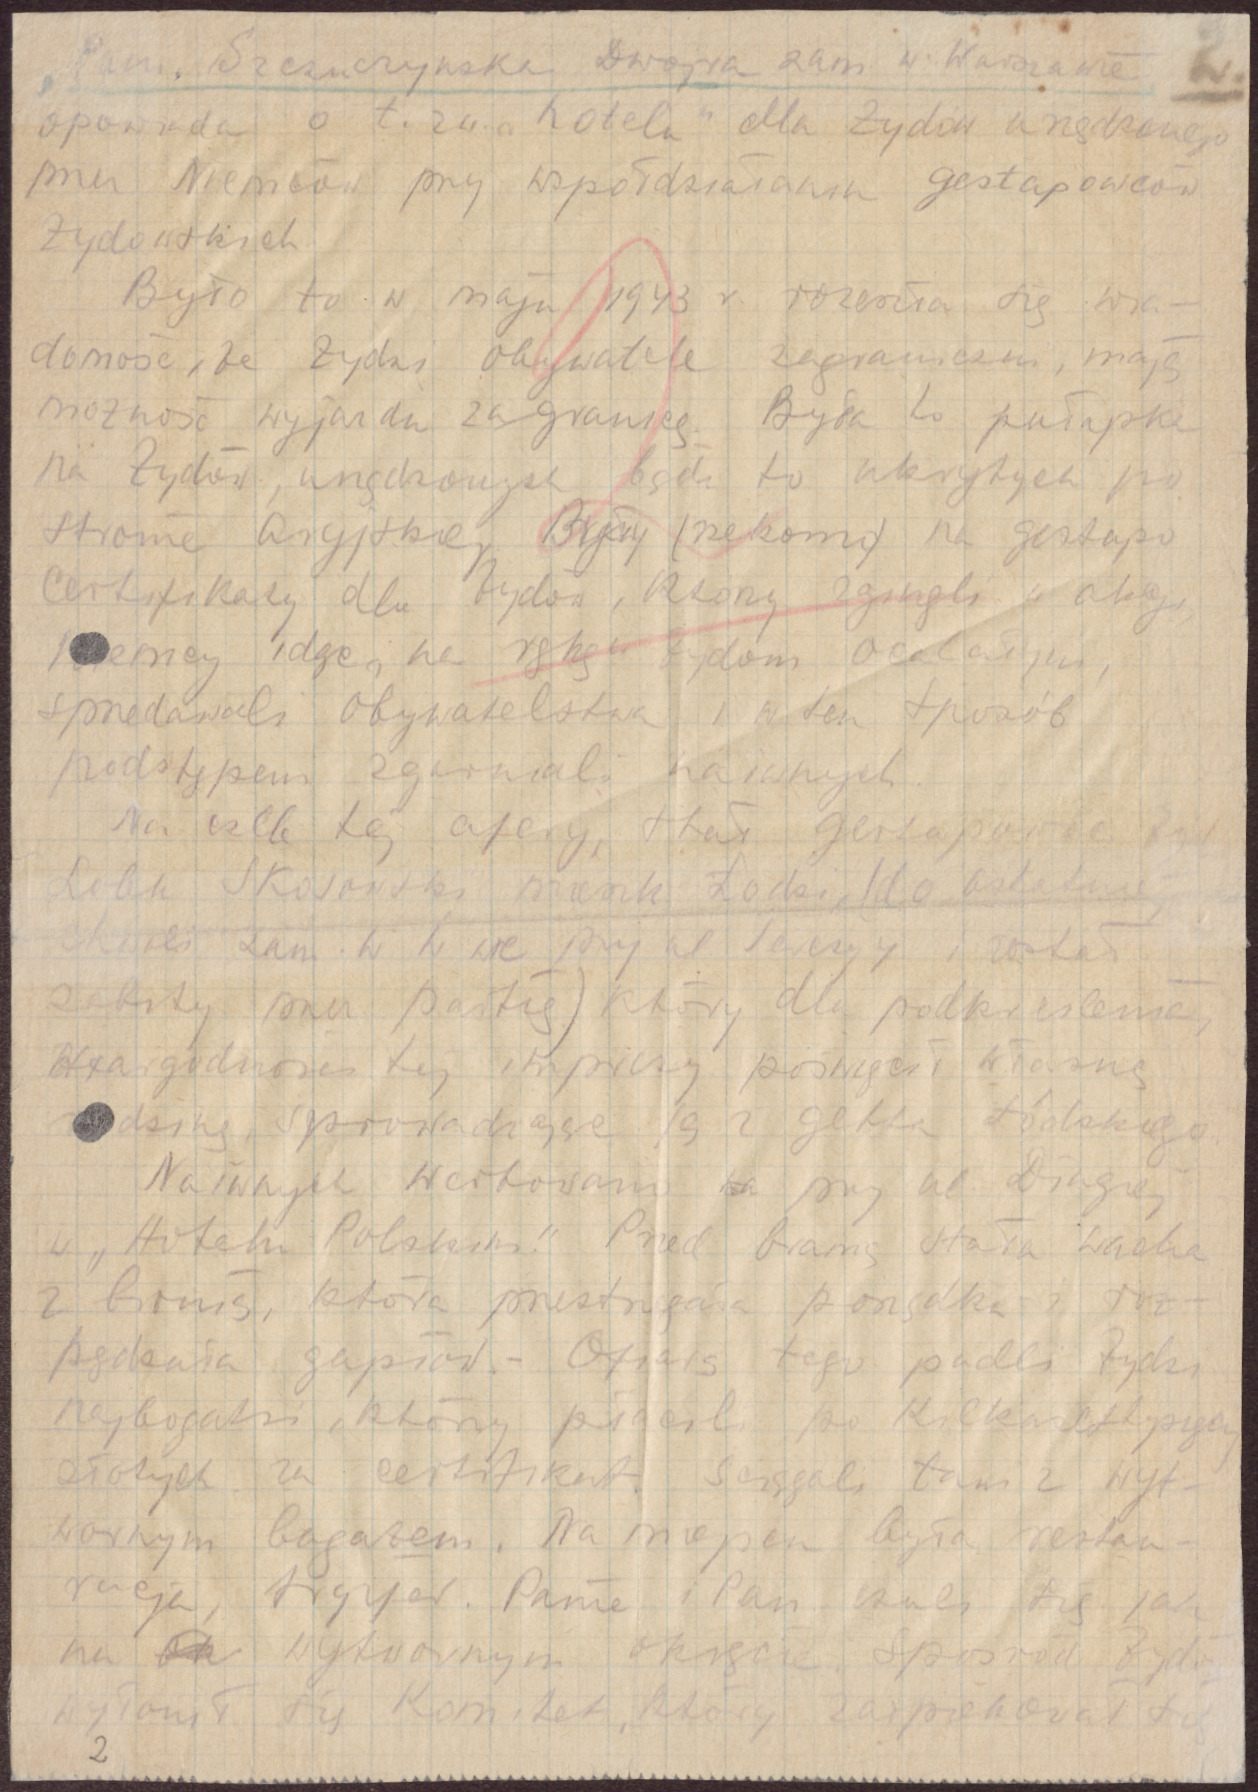 Pani. Szczuczyńska Dwojra zam. w. Warszawie 2.
opowiada o t. zw. „hotelu" dla Żydów urządzonego
przez Niemców przy współdziałaniu gestapowców
Żydowskich
Było to w maju 1943 r. rozeszła się wia-
domość, że Żydzi obywatele zagraniczni, mają
możność wyjazdu zagranicę. Była to pułapka
na Żydów, urządzonych bądź to ukrytych po
stronie Aryjskiej. Były (rzekomo) na gestapo
Certyfikaty dla Żydów, którzy zginęli w akcji,
Niemcy idąc, na rękę Żydom ocalałym,
sprzedawali obywatelstwa i w ten sposób
podstępem zgarniali naiwnych.
Na czele tej afery, stał gestapowiec Żyd
Lolek Skosowski mieszk Łodzi, (do ostatniej
chwili zam. w W-wie przy ul i został
zabity przez partię) który dla podkreślenia,
wiarygodności tej imprezy poświęcił własną
rodzinę, sprowadzając ją z getta łódzkiego.
Naiwnych werbowano przy ul. Długiej
w „Hotelu Polskim." Przed bramą stała wacha
z bronią, która przestrzegała porządku i roz-
pędzała gapiów. - Ofiarą tego padli Żydzi
najbogatsi, którzy płacili po kilkaset tysięcy
złotych za certifikat. Ściągali tam z wyt-
wornym bagażem. Na miejscu była restau-
racja, fryzjer. Panie i Pan czuli się jak
na wytwornym okręcie. Spośród Żydów
wyłonił się Komitet, który zaopiekował się
2